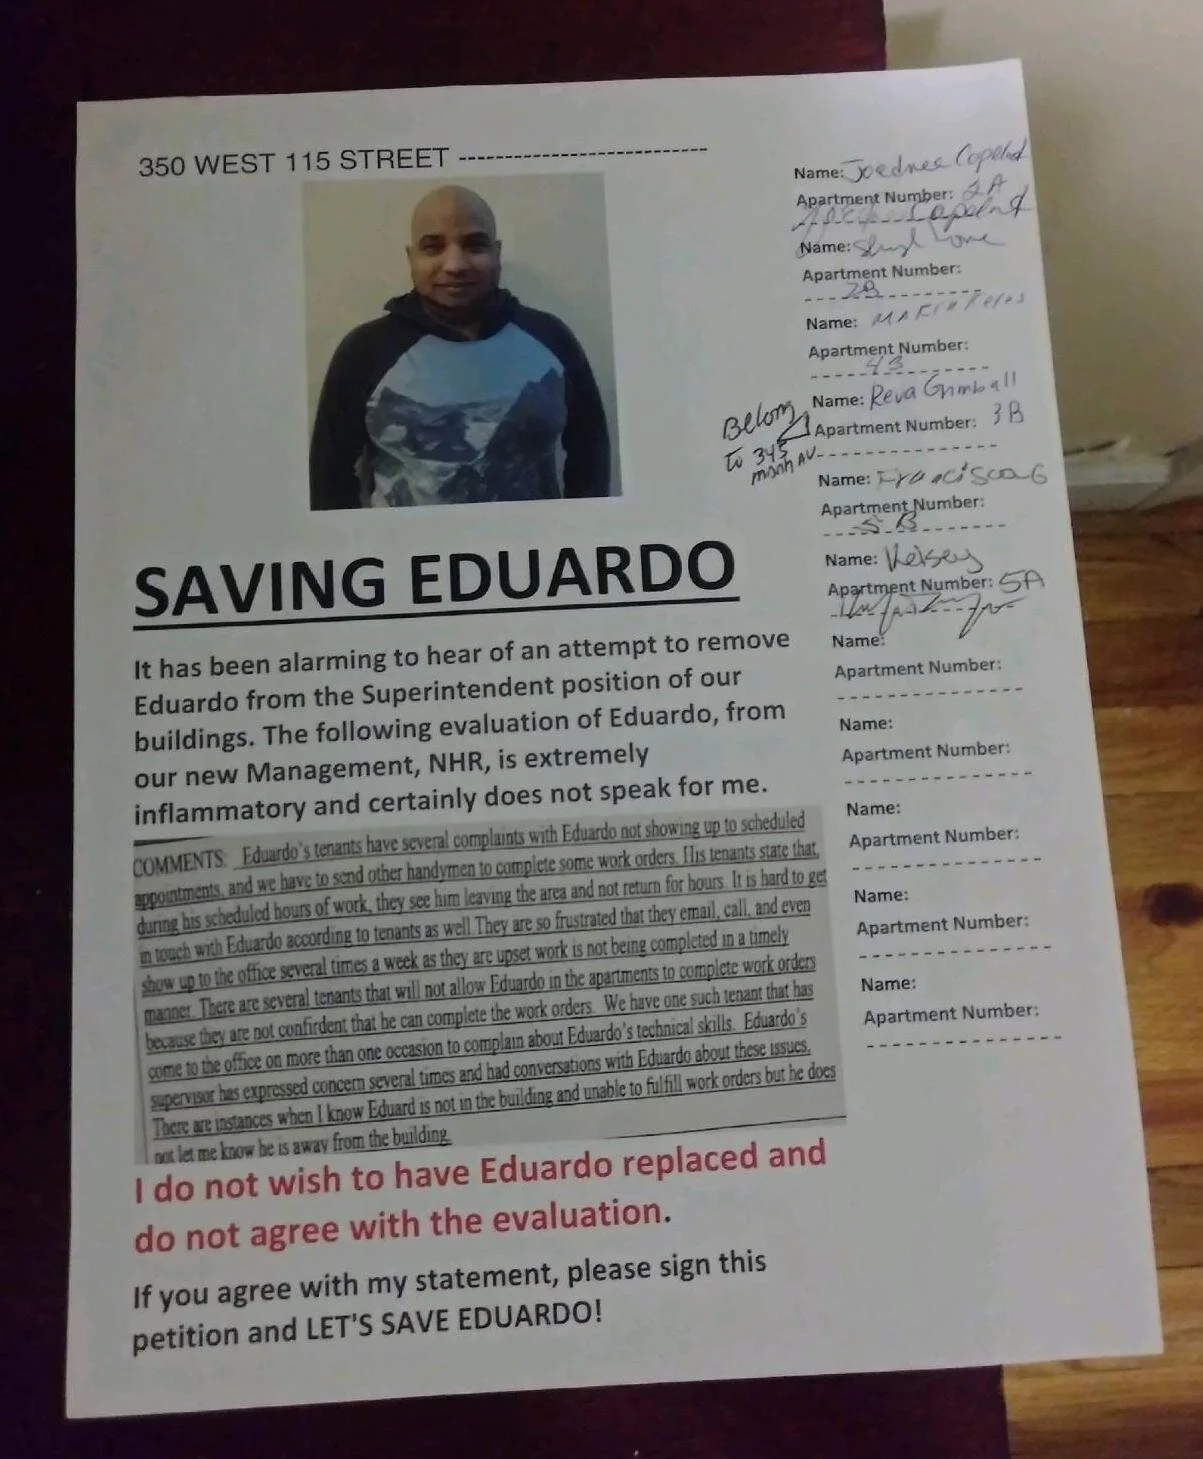 350 WEST 115 STREET ---------------------------
SAVING EDUARDO
It has been alarming to hear of an attempt to remove
Eduardo from the Superintendent position of our
buildings. The following evaluation of Eduardo, from
our new Management, NHR, is extremely
inflammatory and certainly does not speak for me.
COMMENTS: Eduardo's tenants have several complaints with Eduardo not showing up to scheduled
appointments, and we have to send other handymen to complete some work orders. His tenants state that,
during his scheduled hours of work, they see him leaving the area and not return for hours. It is hard to get
in touch with Eduardo according to tenants as well They are so frustrated that they email, call, and even
show up to the office several times a week as they are upset work is not being completed in a timely
manner. There are several tenants that will not allow Eduardo in the apartments to complete work orders
because they are not confirdent that he can complete the work orders. We have one such tenant that has
come to the office on more than one occasion to complain about Eduardo's technical skills. Eduardo's
supervisor has expressed concern several times and had conversations with Eduardo about these issues.
There are instances when I know Eduard is not in the building and unable to fulfill work orders but he does
not let me know he is away from the building.
I do not wish to have Eduardo replaced and
do not agree with the evaluation.
If you agree with my statement, please sign this
petition and LET'S SAVE EDUARDO!
Name: Copeland
Apartment Number: 2A
Copeland
Name:
Apartment Number:
2B
Name: MARIA
Apartment Number:
4B
Name: Reva Grimball
Apartment Number: 3B
Belong
to 345
manh AV
Name: Francisca G
Apartment Number:
5B
Name: Kelsey
Apartment Number: 5A
Name:
Apartment Number:
Name:
Apartment Number:
Name:
Apartment Number:
Name:
Apartment Number:
Name:
Apartment Number: